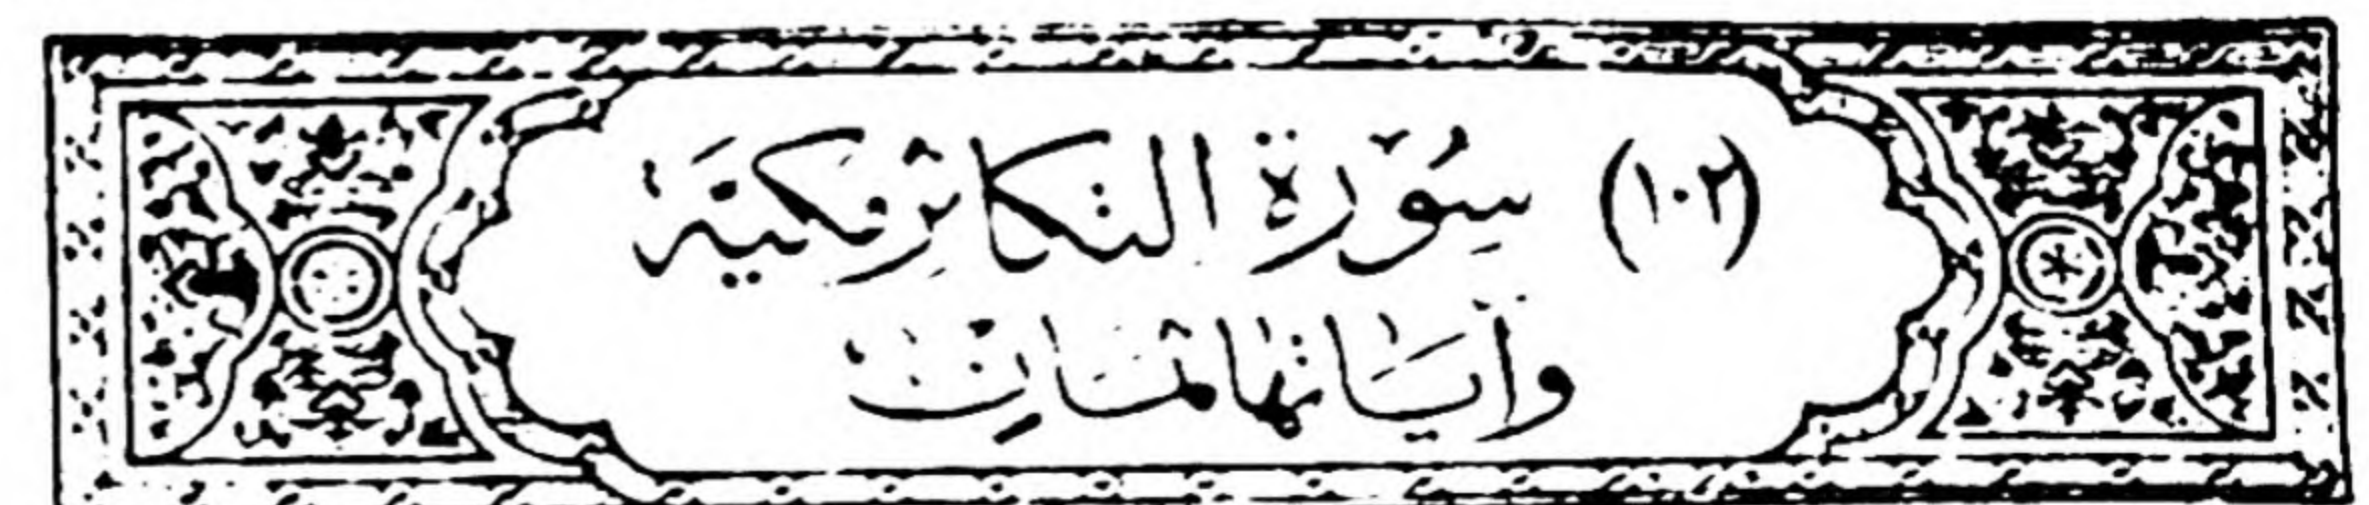 (١٠٢) سُوْرَة التَّكَاثُرِ مَكيَّة
وَآيَاتهَا ثَمَانٍ